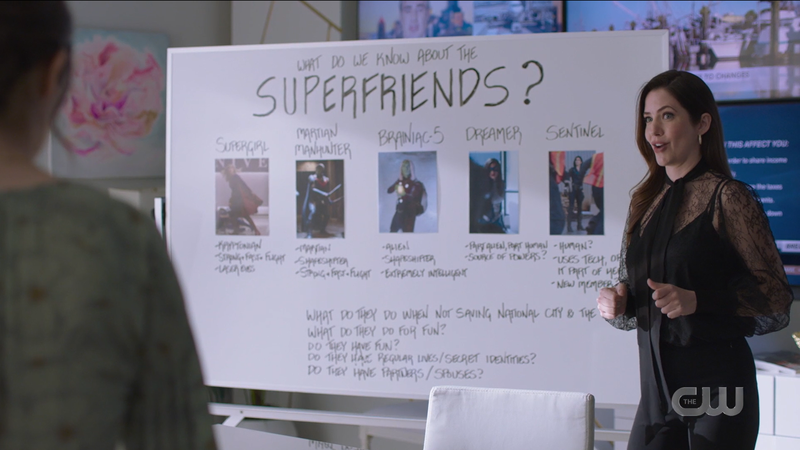 WHAT DO WE KNOW ABOUT THE
SUPERFRIENDS?
SUPERGIRL
MARTIAN
MANHUNTER
BRAINIAC-5
DREAMER
SENTINEL
-KRYPTONIAN
-STRONG + FAST + FLIGHT
-LASER EYES
-MARTIAN
-SHAPESHIFTER
-STRONG + FAST + FLIGHT
-ALIEN
-SHAPESHIFTER
-EXTREMELY INTELLIGENT
-PART ALIEN, PART HUMAN
SOURCE OF POWERS?
-HUMAN?
-USES TECH, OR
IT PART OF HE
-NEW MEMBER
WHAT DO THEY DO WHEN NOT SAVING NATIONAL CITY & THE
WHAT DO THEY DO FOR FUN?
DO THEY HAVE FUN?
DO THEY HAVE REGULAR LIVES/SECRET IDENTITIES?
DO THEY HAVE PARTNERS/SPOUSES?
TO CHANGES
THIS AFFECT YOU
order to share income
the taxes
THE CW